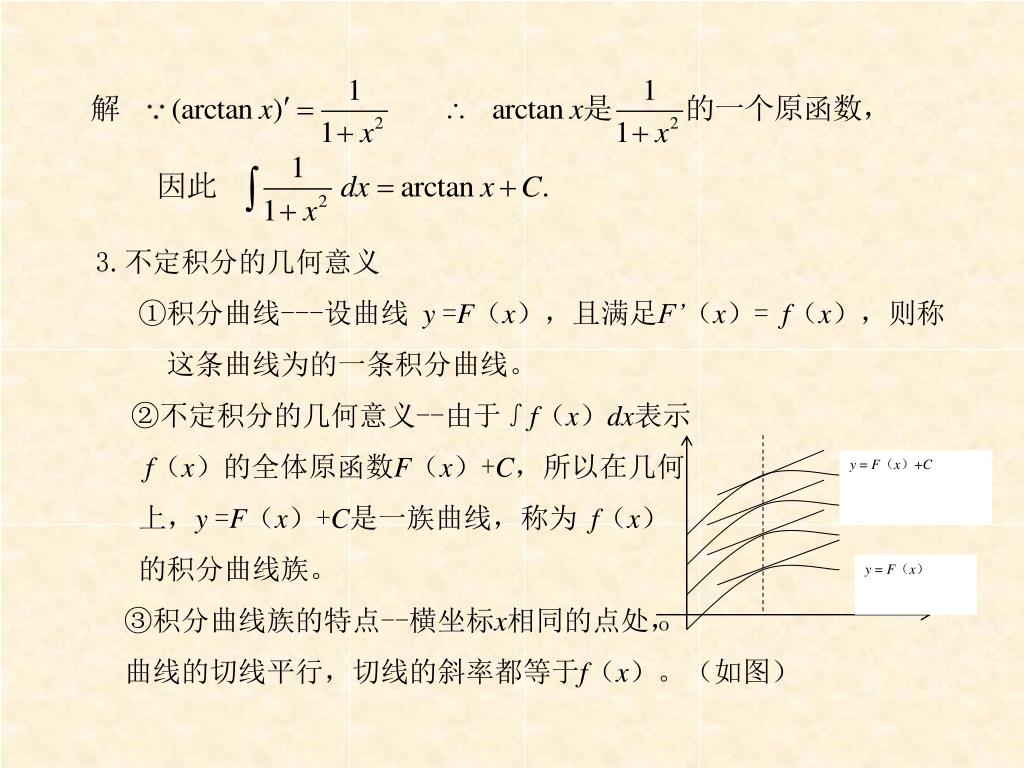 解 ∵ (arctan x)′ = 1/(1+x²) ∴ arctan x是 1/(1+x²) 的一个原函数，
因此 ∫ 1/(1+x²) dx = arctan x + C.
3.不定积分的几何意义
①积分曲线---设曲线 y =F（x），且满足F’（x）= f（x），则称
这条曲线为的一条积分曲线。
②不定积分的几何意义--由于∫f（x）dx表示
f（x）的全体原函数F（x）+C，所以在几何
上，y =F（x）+C是一族曲线，称为 f（x）
的积分曲线族。
③积分曲线族的特点--横坐标x相同的点处，
曲线的切线平行，切线的斜率都等于f（x）。（如图）
y = F（x）+C
y = F（x）
O